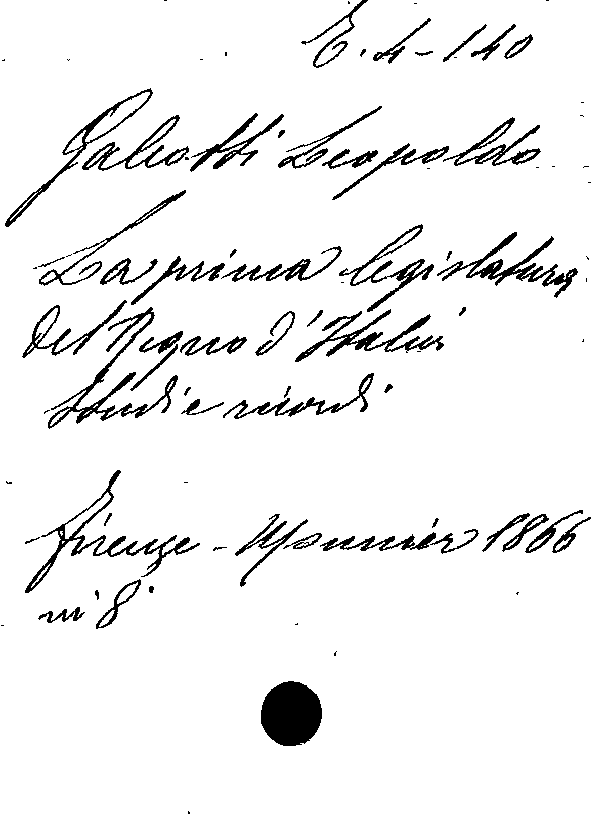 E. 4-140
Galeotti Leopoldo
La prima legislatura
del Regno d'Italia
Studi e ricordi
Firenze - Monnier 1866
in 8°